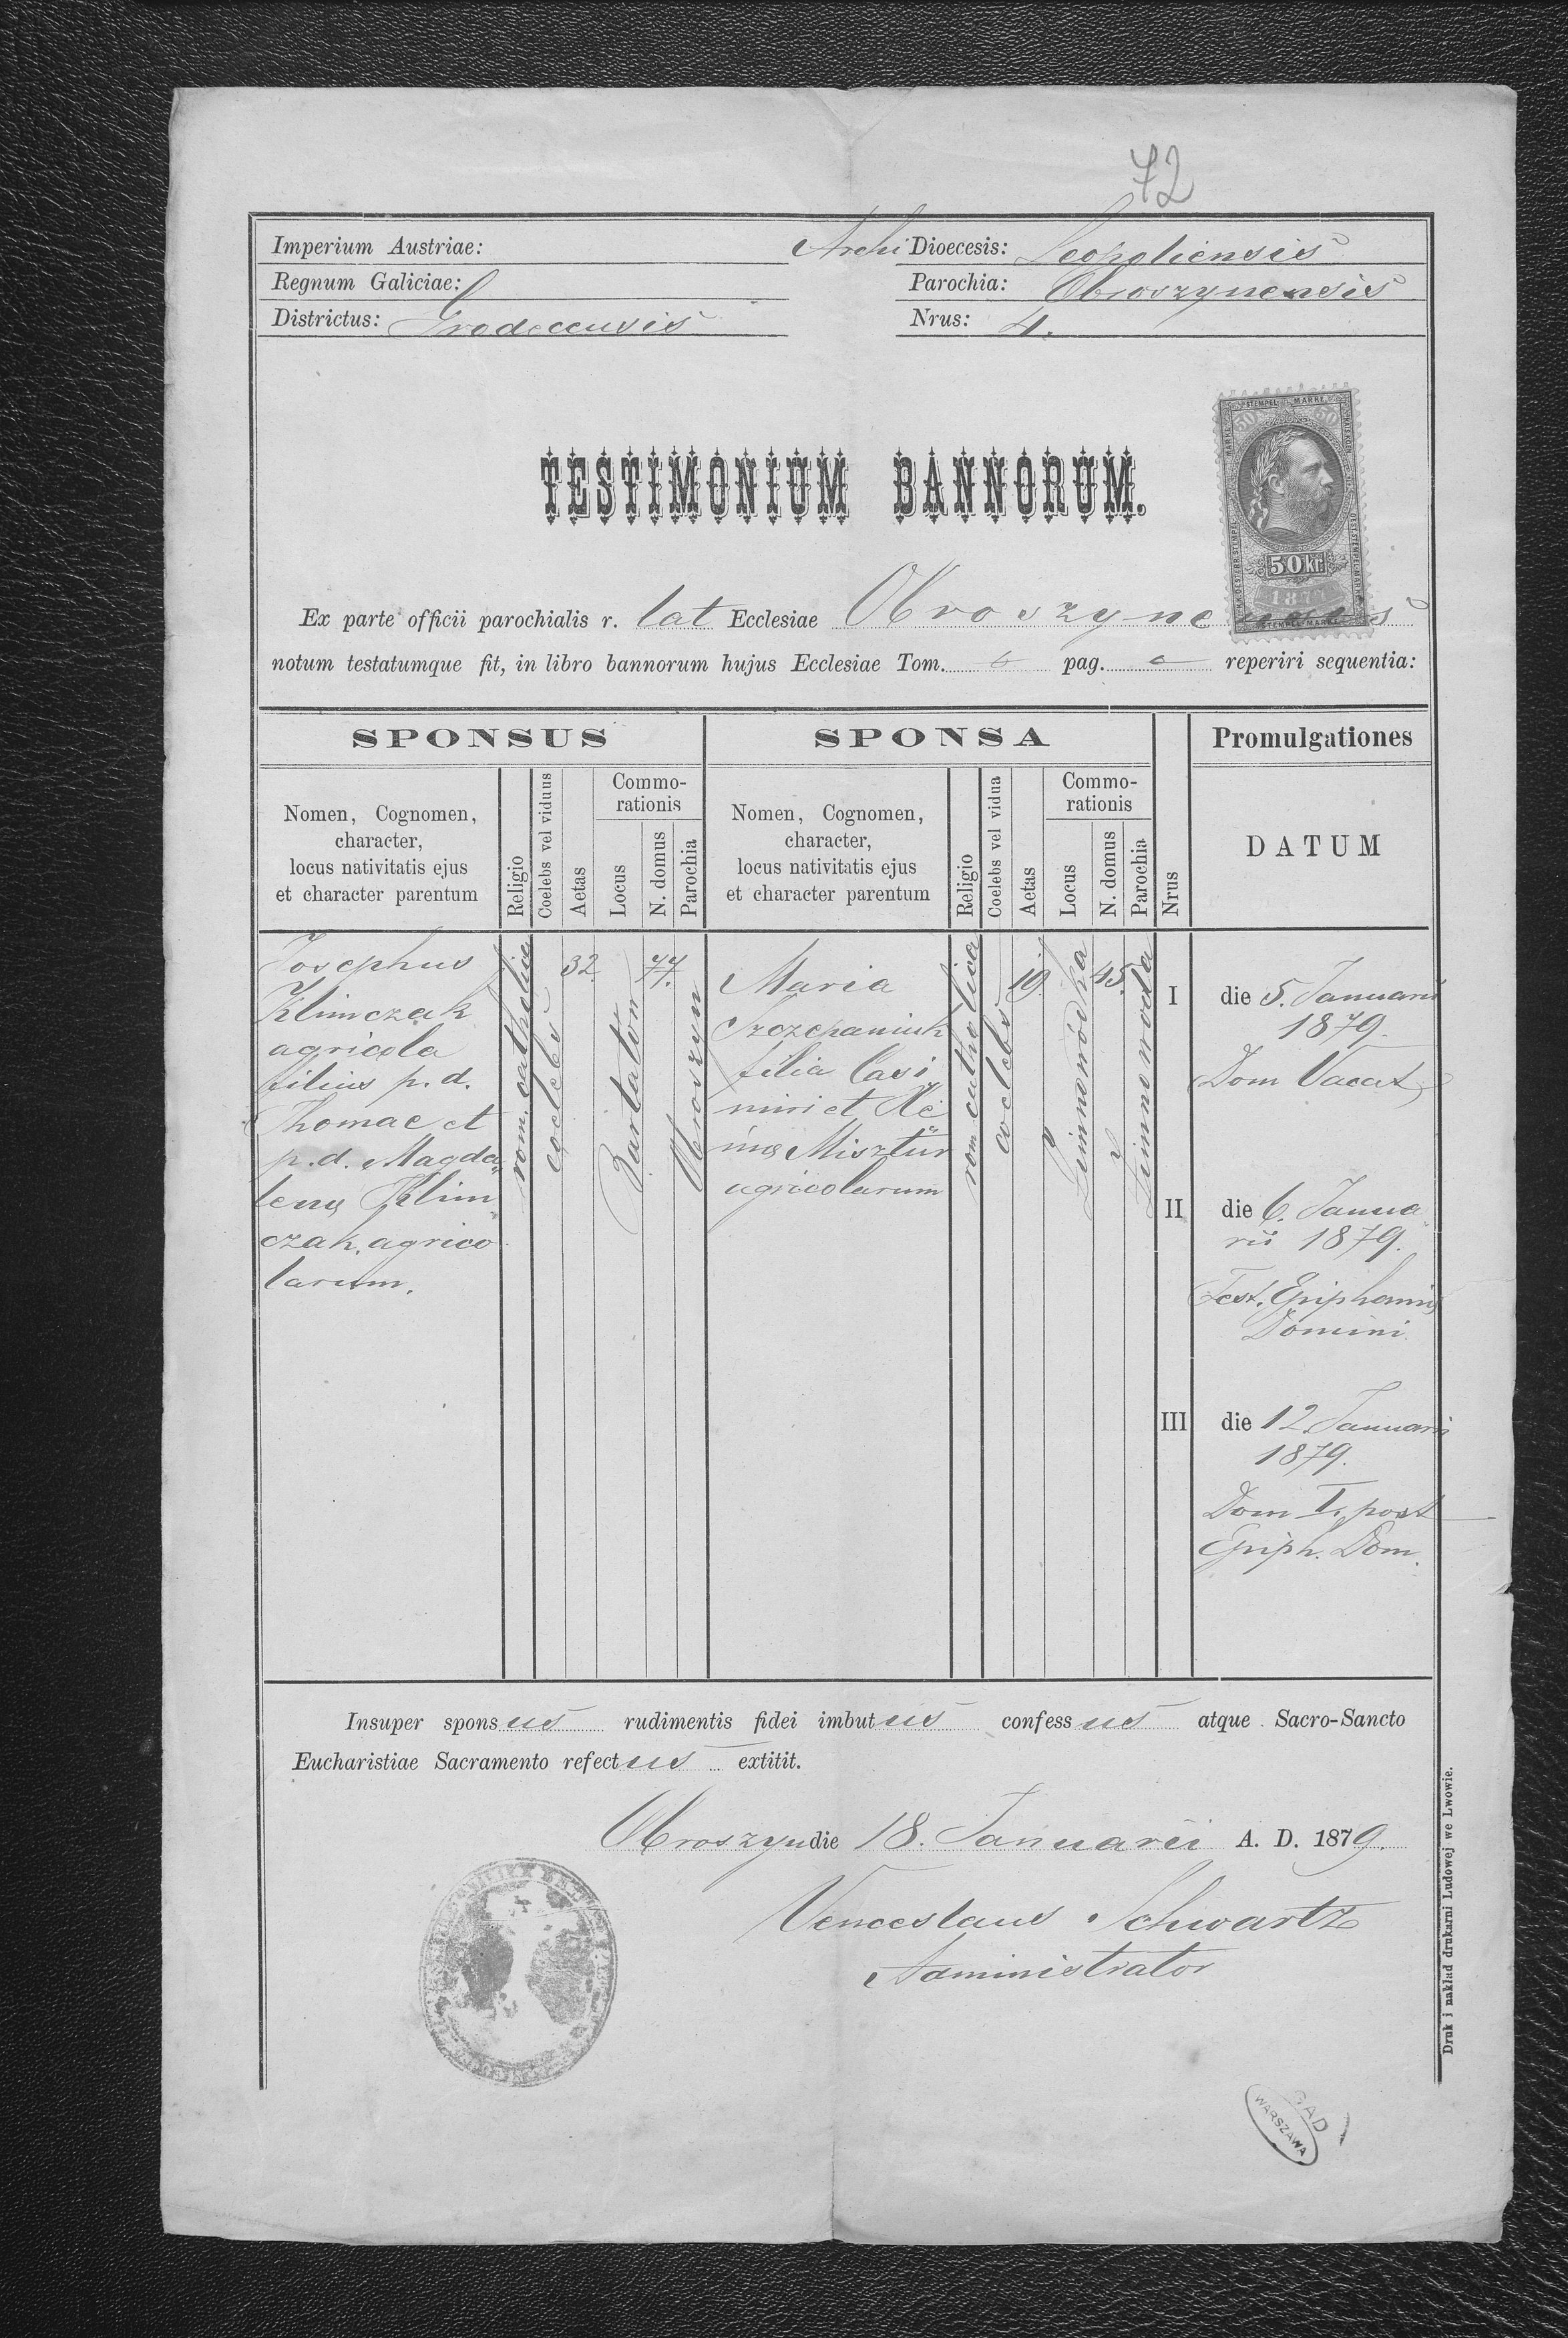 72
Imperium Austriae:
Archi Dioecesis: Leopoliensis
Regnum Galiciae:
Parochia: Obroszynensis
Districtus: Grodecensis
Nrus: 4.
TESTIMONIUM BANNORUM.
STEMPEL MARKE
50 kr.
187
STEMPEL MARKE
Ex parte officii parochialis r. lat Ecclesiae Obroszynensis
notum testatumque fit, in libro bannorum hujus Ecclesiae Tom. pag. reperiri sequentia:
SPONSUS
SPONSA
Promulgationes
Nomen, Cognomen,
character,
locus nativitatis ejus
et character parentum
Religio
Coelebs vel viduus
Aetas
Commo-
rationis
Locus
N. domus
Parochia
Nomen, Cognomen,
character,
locus nativitatis ejus
et character parentum
Religio
Coelebs vel vidua
Aetas
Commo-
rationis
Locus
N. domus
Parochia
Nrus
DATUM
Josephus
Klimczak
agricola
filius p. d.
Thomae et
p. d. Magda
lenę Klim
czak, agrico
larum.
rom. catholica
coelebs
32.
Bartatów
77.
Obroszyn
Maria
Szczepaniuk
filia Casi
miri et
Misztur
agricolarum
rom catholica
coelebs
19.
Zimnawódka
45.
Zimnawoda
I die 5. Januarii
1879.
Dom Vacat
II die 6. Janua
rii 1879.
Fest. Epiphanię
Domini.
III die 12 Januarii
1879.
Dom I. post
Epiph. Dom.
Insuper sponsus rudimentis fidei imbutus confessus atque Sacro-Sancto
Eucharistiae Sacramento refectus extitit.
Obroszyn die 18. Januarii A. D. 1879.
Venceslaus Schwartz
Administrator
Druk i nakład drukarni Ludowej we Lwowie.
GAD
WARSZAWA